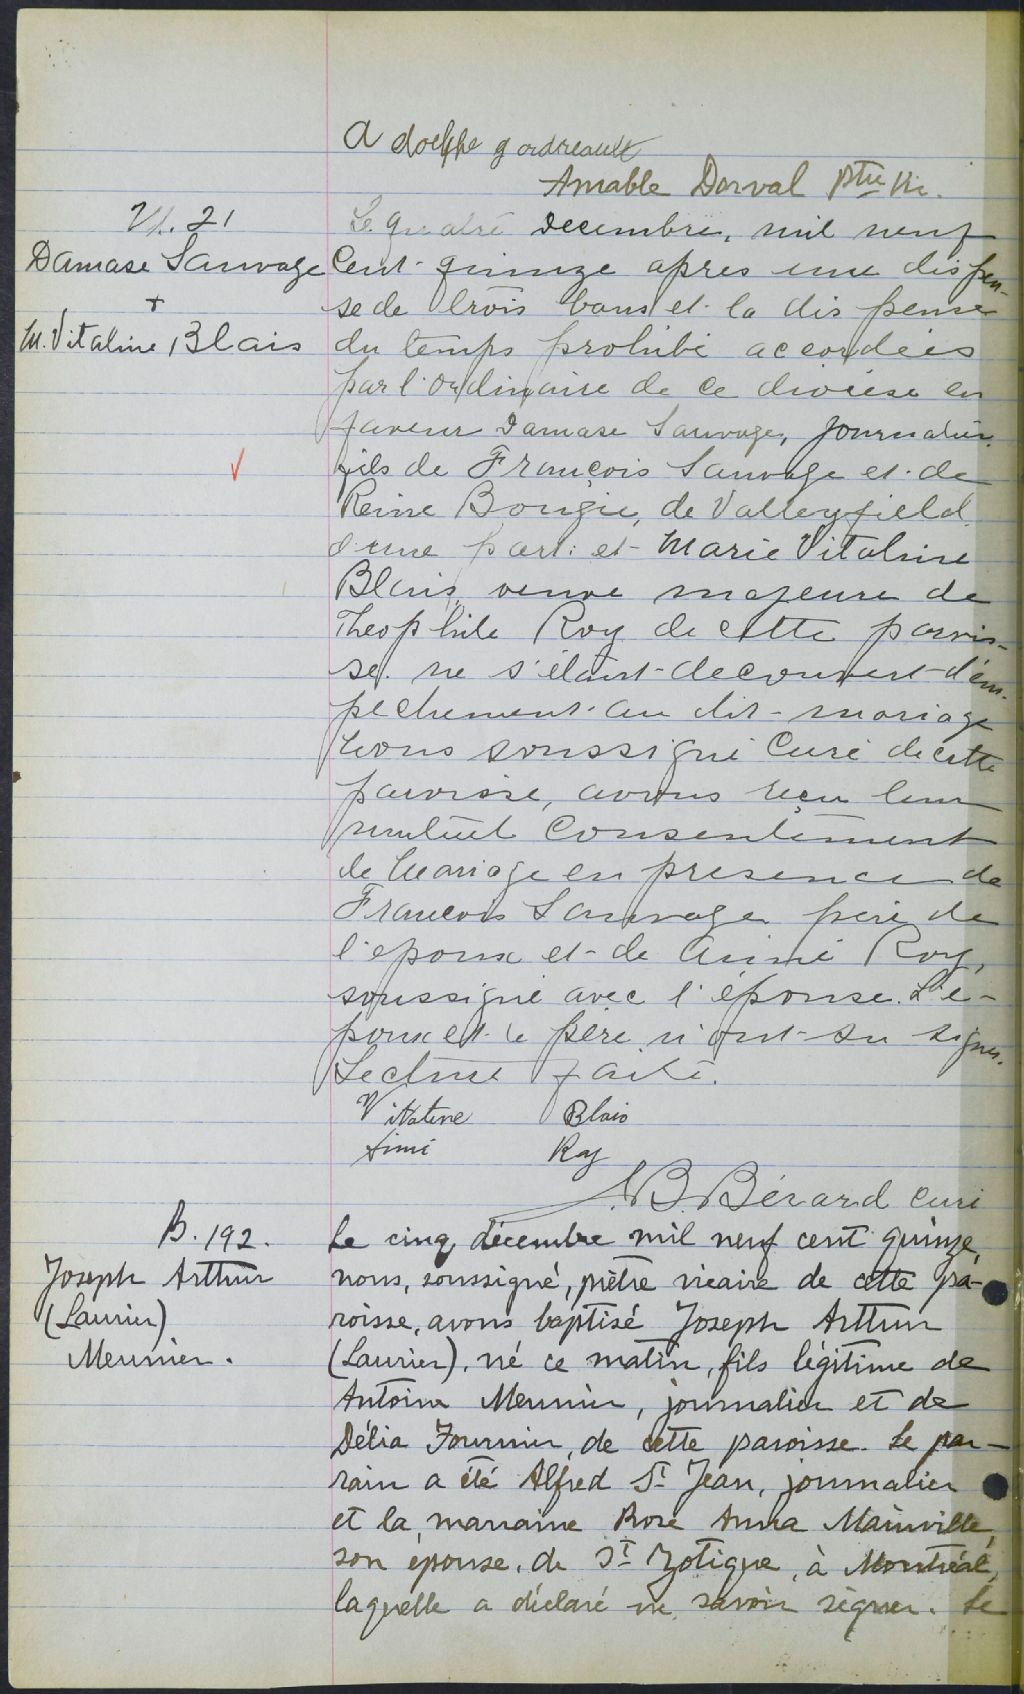 Adolphe gordreault
Amable Dorval Ptre Vic.
M. 21
Damase Sauvage
+
M. Vitaline Blais
Le quatre decembre, mil neuf
Cent quinze apres une dispen-
se de trois bans et la dispense
du temps prohibé accordées
par l'ordinaire de ce diocese en
faveur Damase Sauvage, journalier
fils de François Sauvage et de
Reine Bougie, de Valleyfield
d'une part: et Marie Vitaline
Blais, veuve majeure de
Theophile Roy de cette parois-
se. ne s'étant decouvert d'em-
pechement au dit mariage
Nous soussigné Curé de cette
paroisse, avons reçu leur
mutuel Consentement
de Mariage en presence de
Francois Sauvage père de
l'epoux et de Aimé Roy,
soussigné avec l'épouse. L'é-
poux et le père n'ont su signer.
Lecture faite.
Vitaline Blais
Aimé Roy
J.B. Bérard curé
B. 192.
Joseph Arthur
(Laurier)
Meunier.
Le cinq décembre mil neuf cent quinze,
nous, soussigné, prêtre vicaire de cette pa-
roisse, avons baptisé Joseph Arthur
(Laurier), né ce matin, fils légitime de
Antoine Meunier, journalier et de
Délia Fournier, de cette paroisse. Le par-
rain a été Alfred St Jean, journalier
et la marraine Rose Anna Mainville,
son épouse, de St Zotique, à Montréal,
laquelle a déclaré ne savoir signer. Le